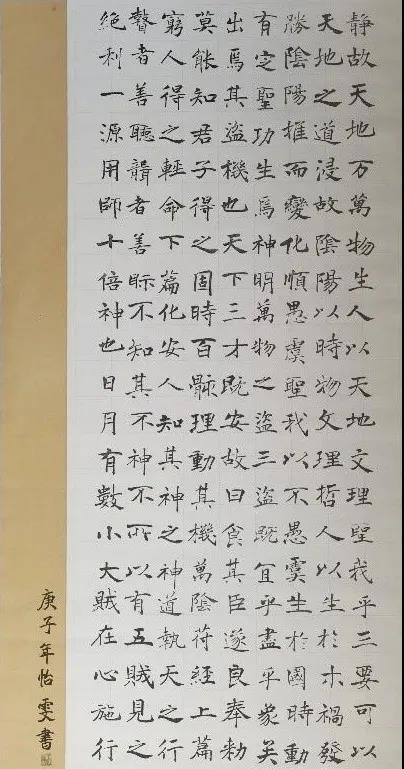 静故天地万萬物生人以天地文理聖我乎三要可以
天地之道浸故陰陽以時物文理哲人以生於木禍發
勝陰陽推而變化順愚虞聖我以不愚虞生於國時動
有定聖功生焉神明萬物之盗三盗既宜乎盡乎象矣
出焉其盗機也天下三才既安故曰食其臣遂良奉勑
莫能知君子得之固時百骸理動其機萬陰符經上篇
窮人得之輕命下篇化安人知其神之神道執天之行
瞽者善聽聾者善眎不知其不神不所以有五賊見之
絶利一源用師十倍神也日月有數小大賊在心施行
庚子年怡雯書